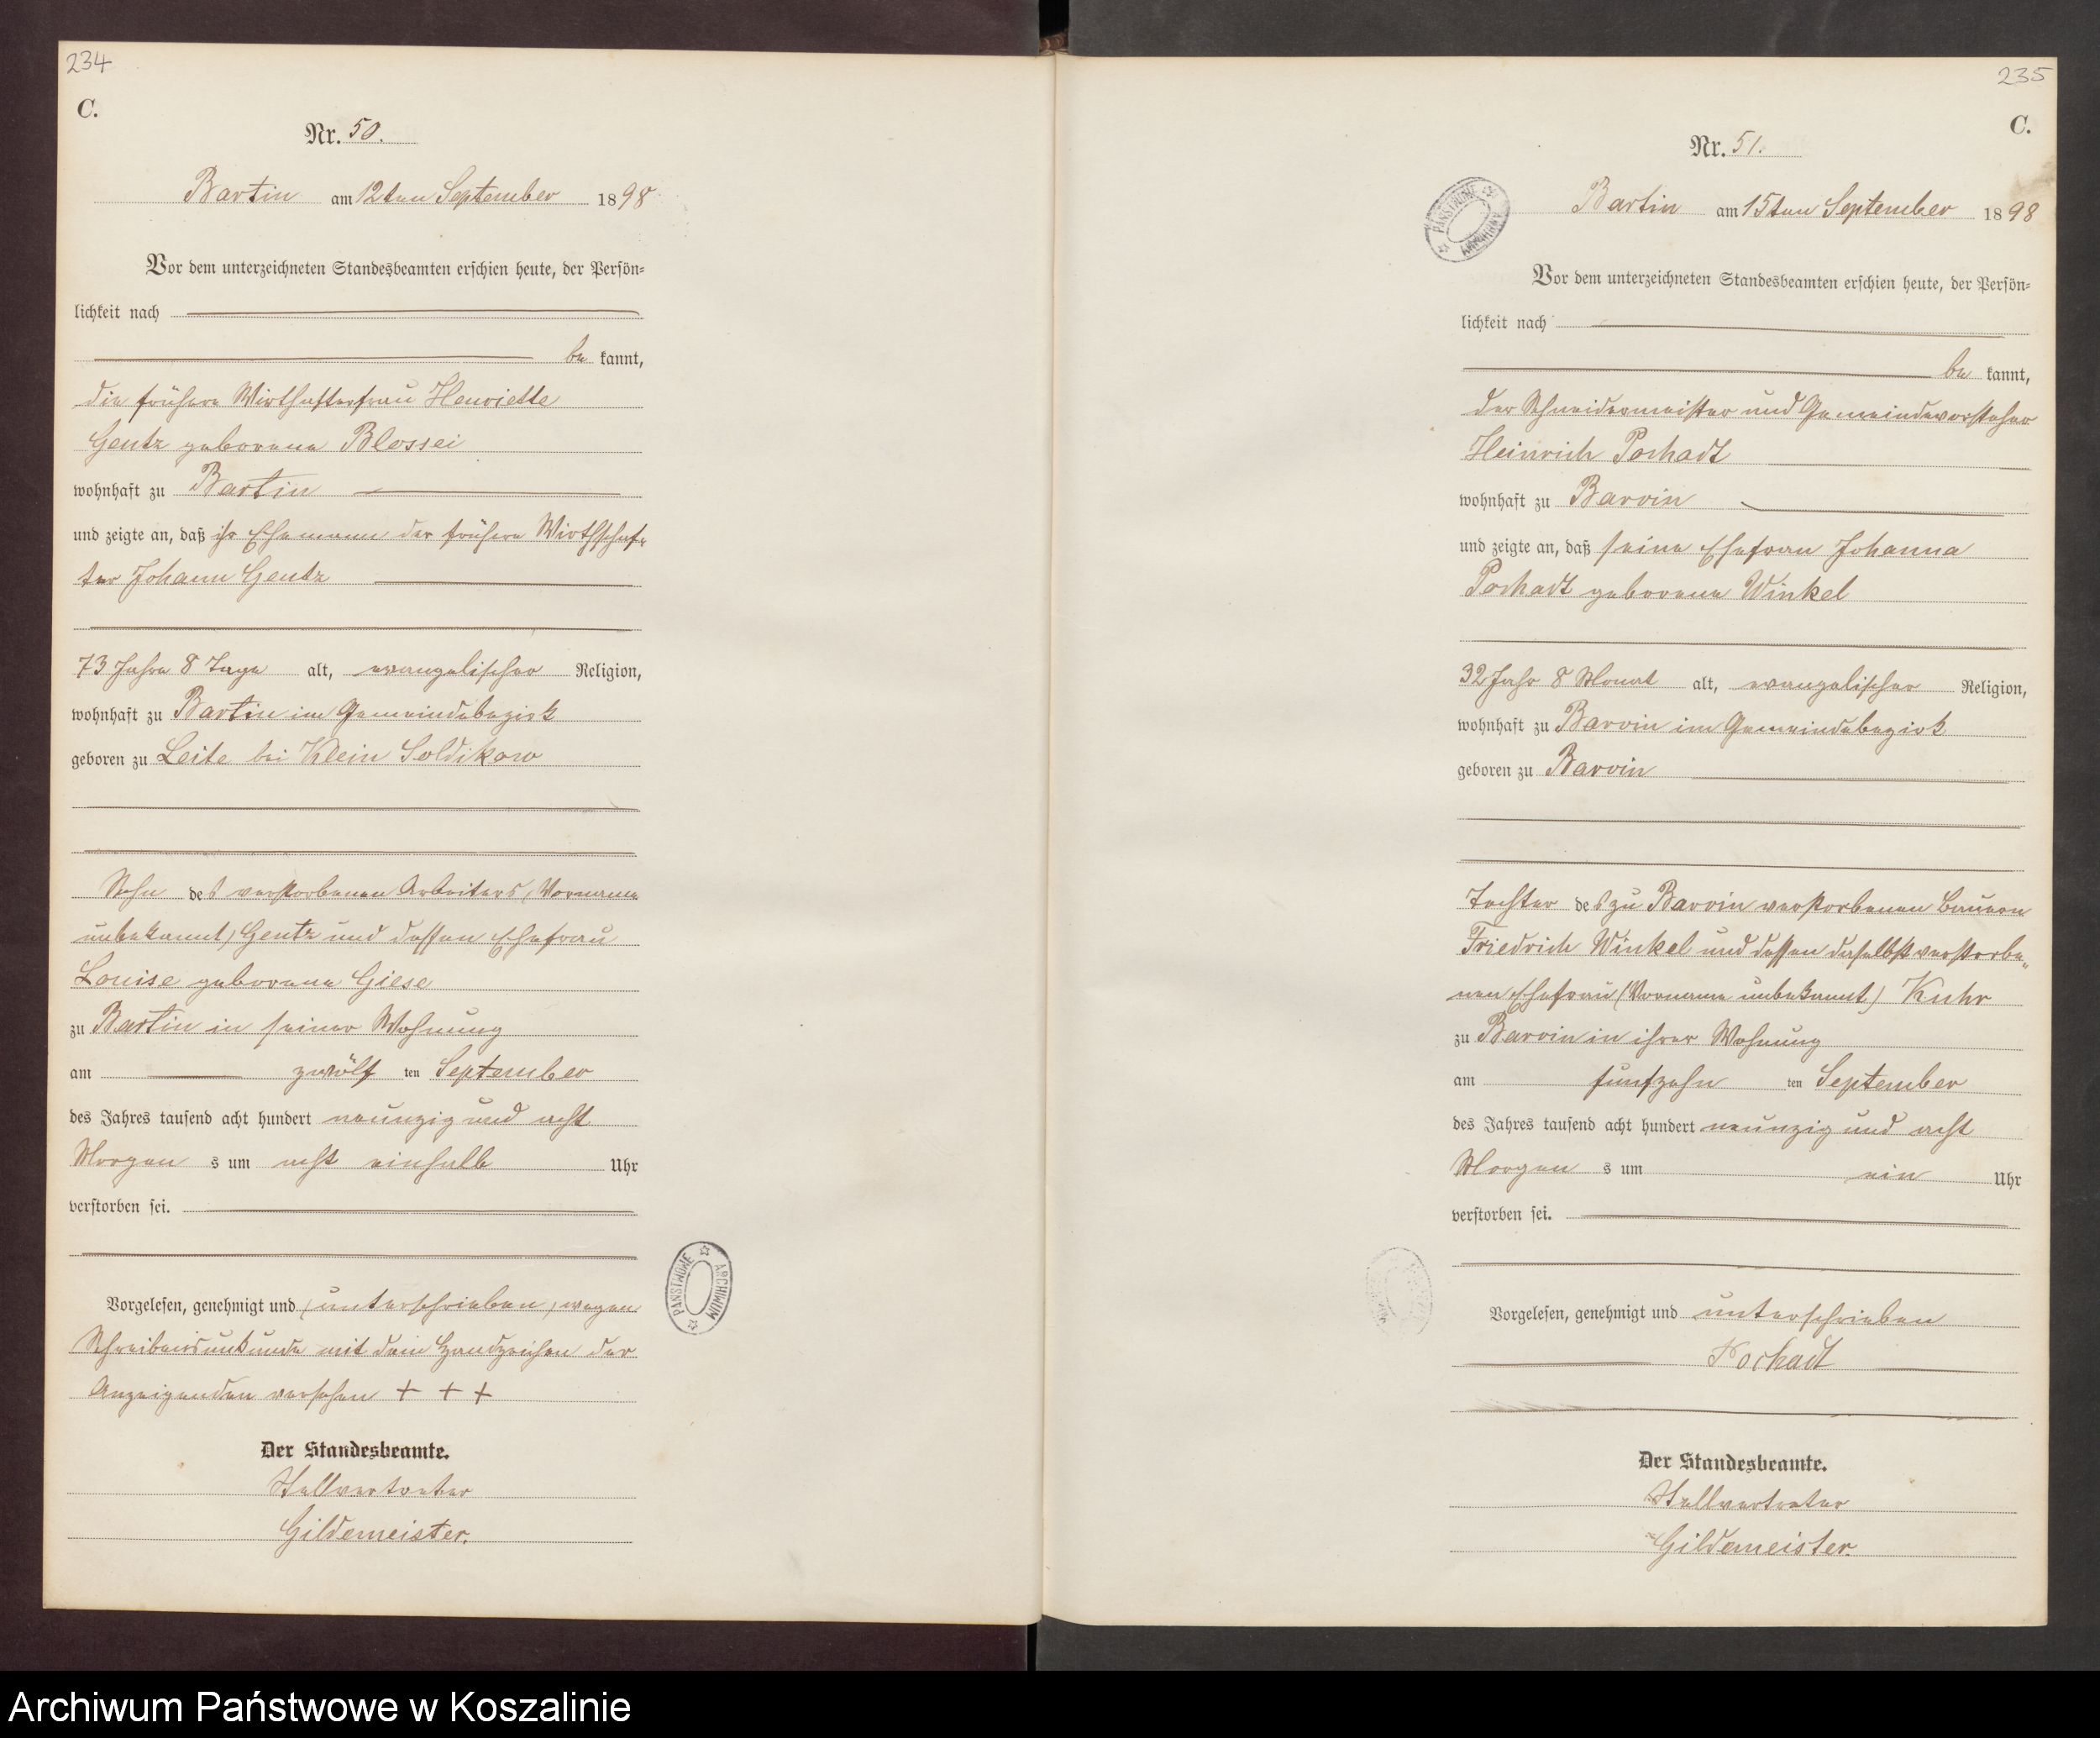 234
C.
Nr. 50.
Bartin am 12ten September 1898
Vor dem unterzeichneten Standesbeamten erschien heute, der Persön-
lichkeit nach
be kannt,
die frühere Wirthschafterfrau Henriette
Gentz geborene Blossei
wohnhaft zu Bartin
und zeigte an, daß ihr Ehemann der frühere Wirthschaf-
ter Johann Gentz
73 Jahre 8 Tage alt, evangelischer Religion,
wohnhaft zu Bartin im Gemeindebezirk
geboren zu Leite bei Klein Soldikow
Sohn des verstorbenen Arbeiters (Vorname
unbekannt) Gentz und dessen Ehefrau
Louise geborene Giese
zu Bartin in seiner Wohnung
am zwölf ten September
des Jahres tausend acht hundert neunzig und acht
Morgen s um acht einhalb Uhr
verstorben sei.
Vorgelesen, genehmigt und (unterschrieben) wegen
Schreibensunkunde mit dem Handzeichen der
Anzeigenden versehen + + +
Der Standesbeamte.
Stellvertreter
Gildemeister.
PAŃSTWOWE ARCHIWUM
235
C.
Nr. 51.
PAŃSTWOWE ARCHIWUM
Bartin am 15ten September 1898
Vor dem unterzeichneten Standesbeamten erschien heute, der Persön-
lichkeit nach
be kannt,
der Schneidermeister und Gemeindevorsteher
Heinrich Pochadt
wohnhaft zu Barvin
und zeigte an, daß seine Ehefrau Johanna
Pochadt geborene Winkel
32 Jahr 8 Monat alt, evangelischer Religion,
wohnhaft zu Barvin im Gemeindebezirk
geboren zu Barvin
Tochter des zu Barvin verstorbenen Bauern
Friedrich Winkel und dessen daselbst verstorbe-
nen Ehefrau (Vorname unbekannt) Kuhr
zu Barvin in ihrer Wohnung
am fünfzehn ten September
des Jahres tausend acht hundert neunzig und acht
Morgen s um ein Uhr
verstorben sei.
Vorgelesen, genehmigt und unterschrieben
Pochadt
Der Standesbeamte.
Stellvertreter
Gildemeister.
Archiwum Państwowe w Koszalinie